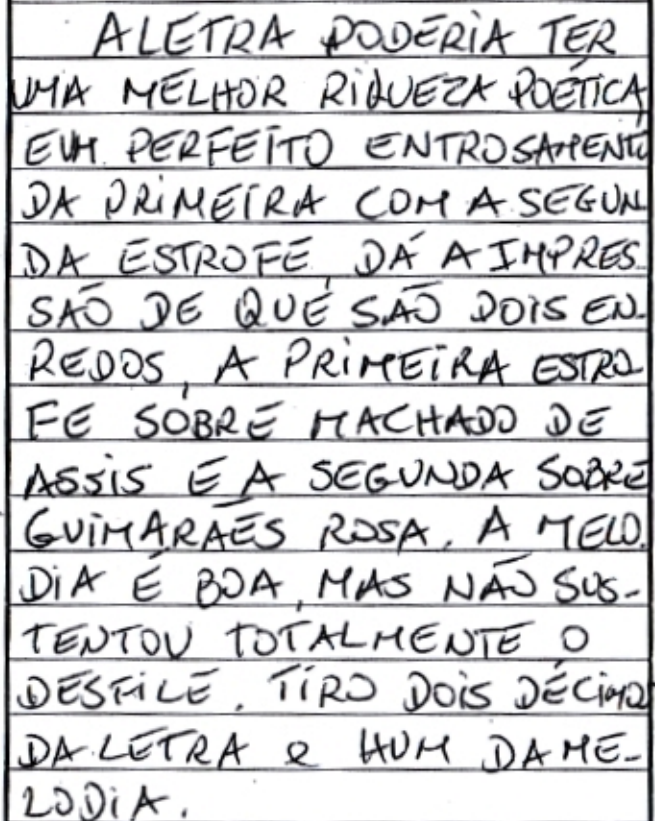 A LETRA PODERIA TER
UMA MELHOR RIQUEZA POÉTICA
E UM PERFEITO ENTROSAMENTO
DA PRIMEIRA COM A SEGUN
DA ESTROFE, DÁ A IMPRES-
SÃO DE QUE SÃO DOIS EN-
REDOS, A PRIMEIRA ESTRO-
FE SOBRE MACHADO DE
ASSIS E A SEGUNDA SOBRE
GUIMARÃES ROSA. A MELO-
DIA É BOA, MAS NÃO SUS-
TENTOU TOTALMENTE O
DESFILE. TIRO DOIS DÉCIMOS
DA LETRA e HUM DA ME-
LODIA.